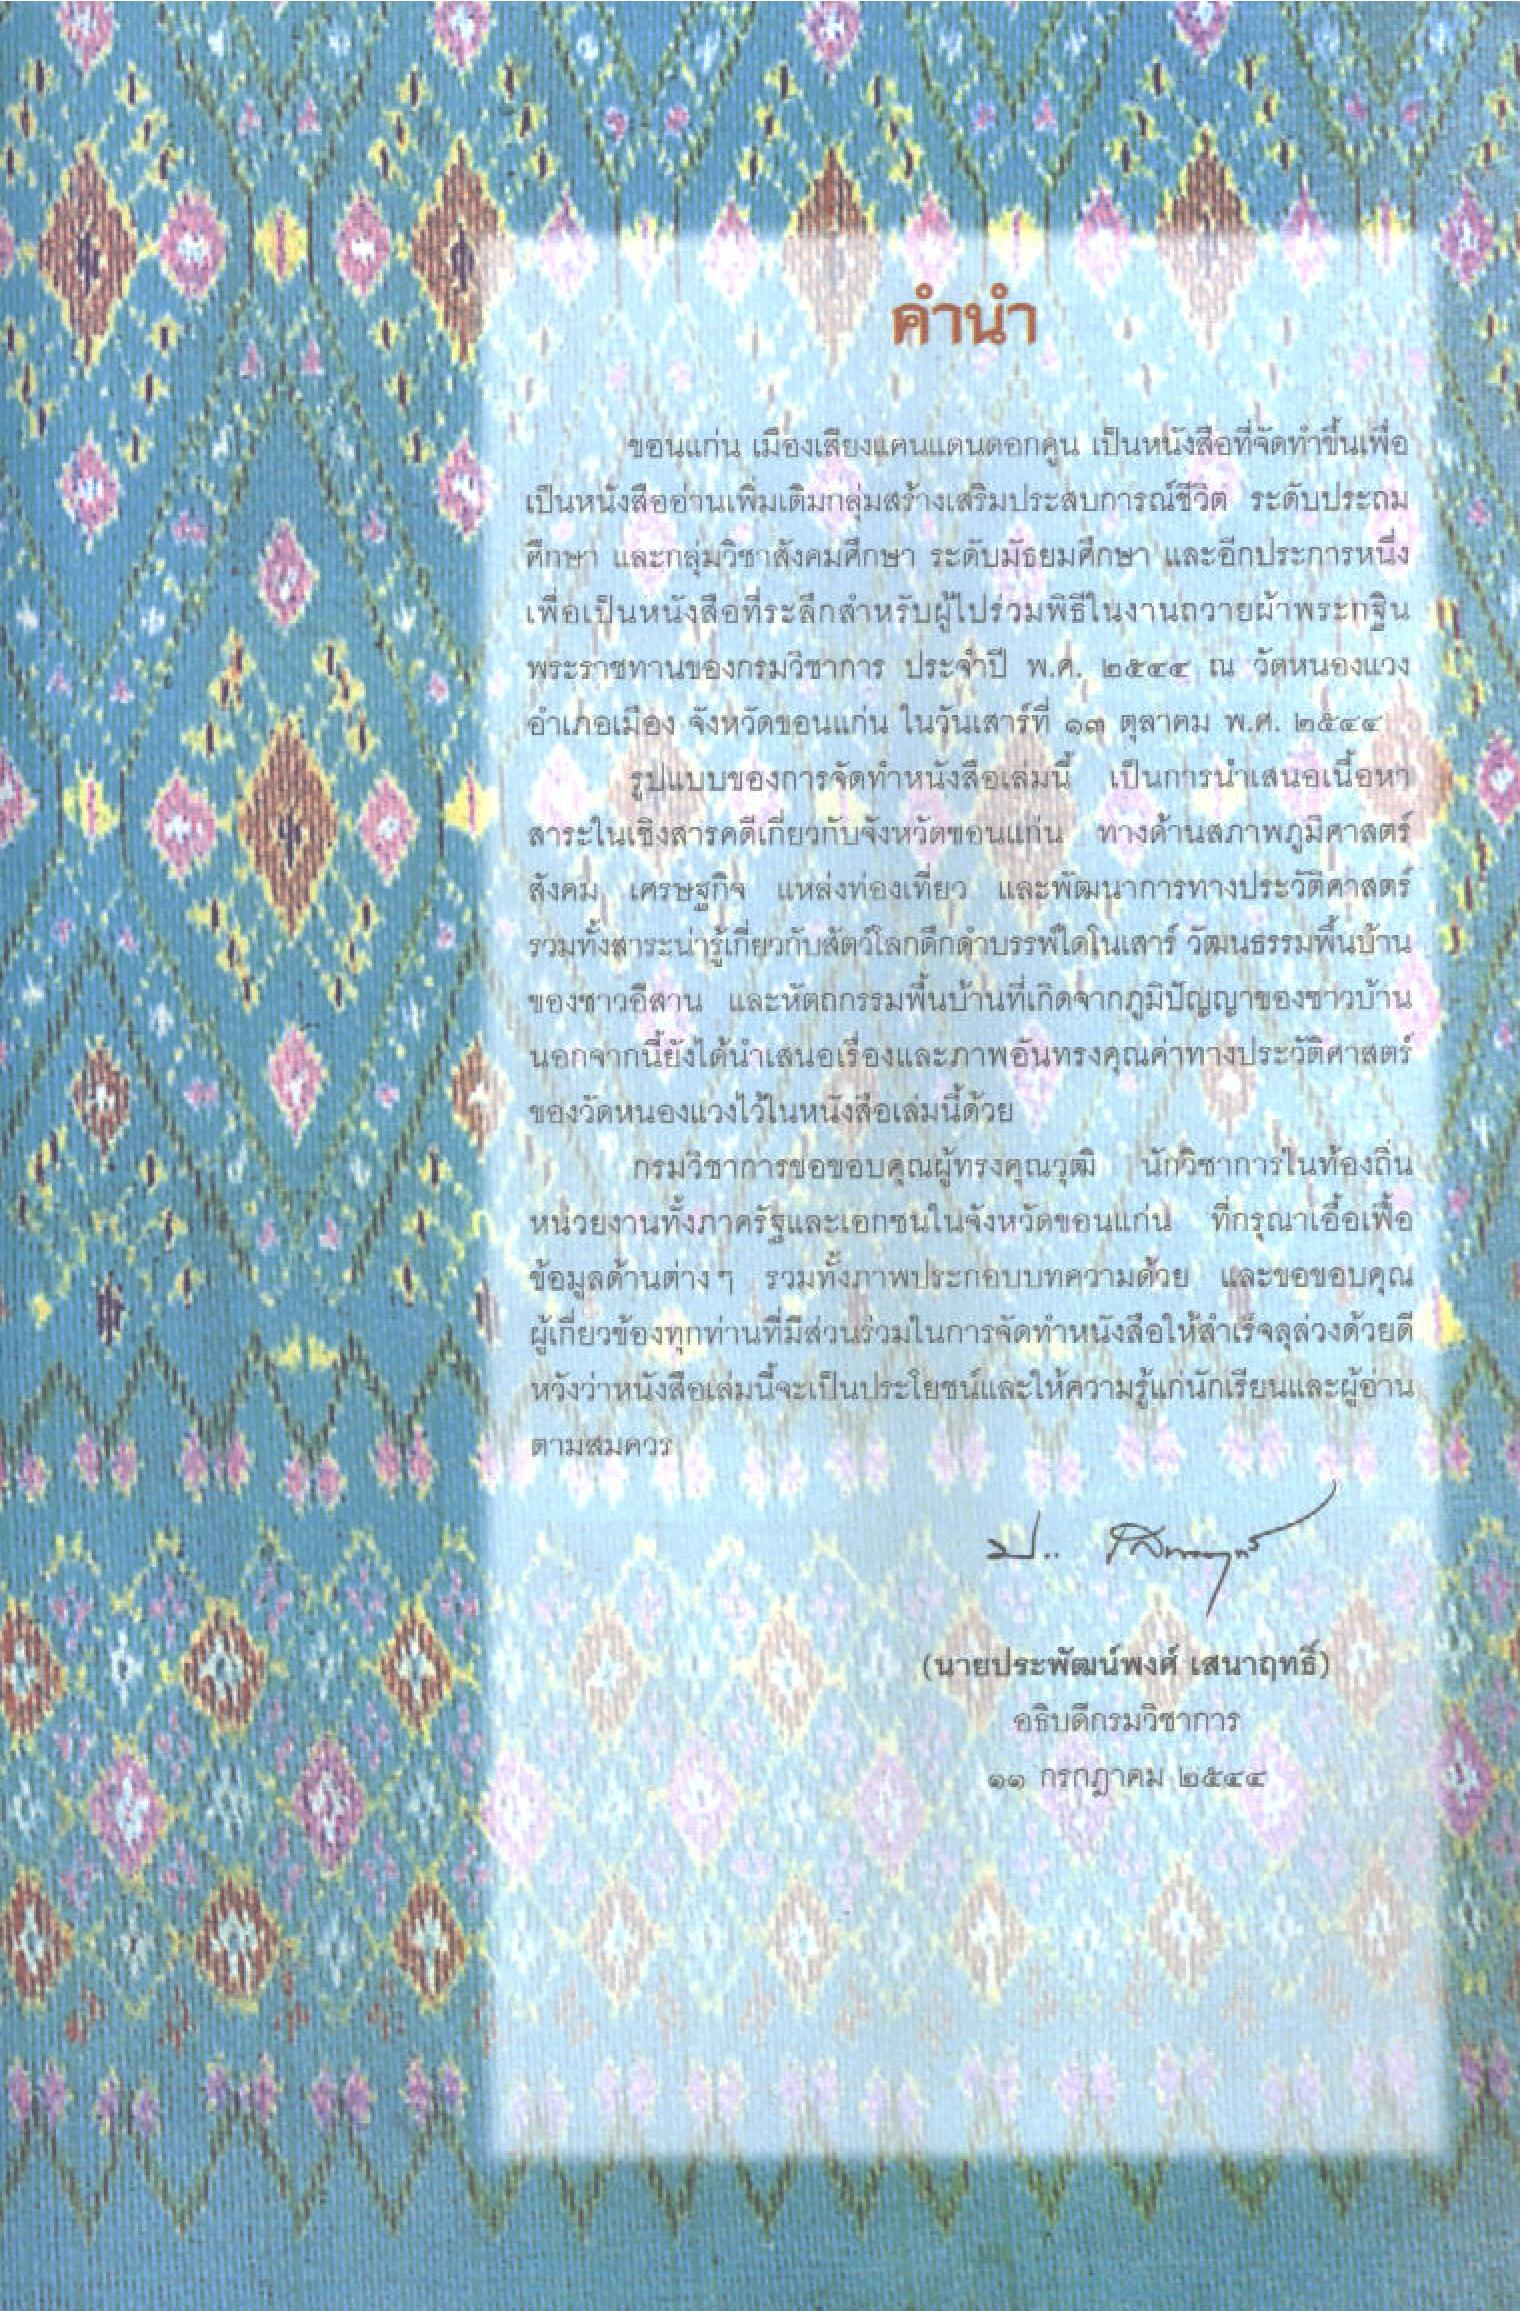 คำนำ
ขอนแก่น เมืองเสียงแคนแดนดอกคูน เป็นหนังสือที่จัดทำขึ้นเพื่อ
เป็นหนังสืออ่านเพิ่มเติมกลุ่มสร้างเสริมประสบการณ์ชีวิต ระดับประถม
ศึกษา และกลุ่มวิชาสังคมศึกษา ระดับมัธยมศึกษา และอีกประการหนึ่ง
เพื่อเป็นหนังสือที่ระลึกสำหรับผู้ไปร่วมพิธีในงานถวายผ้าพระกฐิน
พระราชทานของกรมวิชาการ ประจำปี พ.ศ. ๒๕๔๔ ณ วัดหนองแวง
อำเภอเมือง จังหวัดขอนแก่น ในวันเสาร์ที่ ๑๓ ตุลาคม พ.ศ. ๒๕๔๔
รูปแบบของการจัดทำหนังสือเล่มนี้ เป็นการนำเสนอเนื้อหา
สาระในเชิงสารคดีเกี่ยวกับจังหวัดขอนแก่น ทางด้านสภาพภูมิศาสตร์
สังคม เศรษฐกิจ แหล่งท่องเที่ยว และพัฒนาการทางประวัติศาสตร์
รวมทั้งสาระน่ารู้เกี่ยวกับสัตว์โลกดึกดำบรรพ์ไดโนเสาร์ วัฒนธรรมพื้นบ้าน
ของชาวอีสาน และหัตถกรรมพื้นบ้านที่เกิดจากภูมิปัญญาของชาวบ้าน
นอกจากนี้ยังได้นำเสนอเรื่องและภาพอันทรงคุณค่าทางประวัติศาสตร์
ของวัดหนองแวงไว้ในหนังสือเล่มนี้ด้วย
กรมวิชาการขอขอบคุณผู้ทรงคุณวุฒิ นักวิชาการในท้องถิ่น
หน่วยงานทั้งภาครัฐและเอกชนในจังหวัดขอนแก่น ที่กรุณาเอื้อเฟื้อ
ข้อมูลด้านต่างๆ รวมทั้งภาพประกอบบทความด้วย และขอขอบคุณ
ผู้เกี่ยวข้องทุกท่านที่มีส่วนร่วมในการจัดทำหนังสือให้สำเร็จลุล่วงด้วยดี
หวังว่าหนังสือเล่มนี้จะเป็นประโยชน์และให้ความรู้แก่นักเรียนและผู้อ่าน
ตามสมควร
(นายประพัฒน์พงศ์ เสนาฤทธิ์)
อธิบดีกรมวิชาการ
๑๑ กรกฎาคม ๒๕๔๔